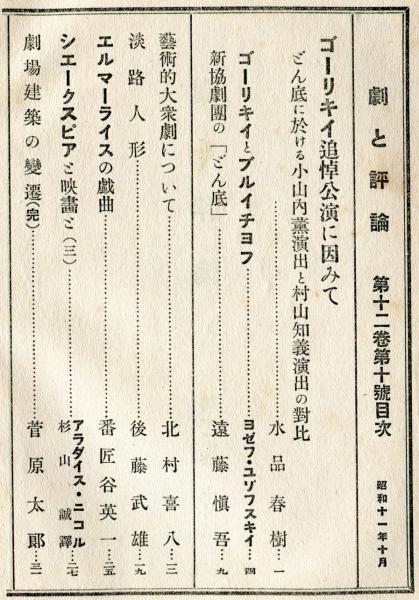 劇と評論　第十二卷第十號目次　昭和十一年十月
ゴーリキイ追悼公演に因みて
どん底に於ける小山內薰演出と村山知義演出の對比
……水品春樹…一
ゴーリキイとブルイチヨフ……ヨゼフ・ユゾフスキイ…四
新協劇團の「どん底」……遠藤愼吾…九
藝術的大衆劇について……北村喜八…三
淡路人形……後藤武雄…一九
エルマーライスの戲曲……番匠谷英一…二五
シエークスピアと映畫と(三)……アラダイス・ニコル
杉山誠譯…二七
劇場建築の變遷(完)……菅原太郎…三一